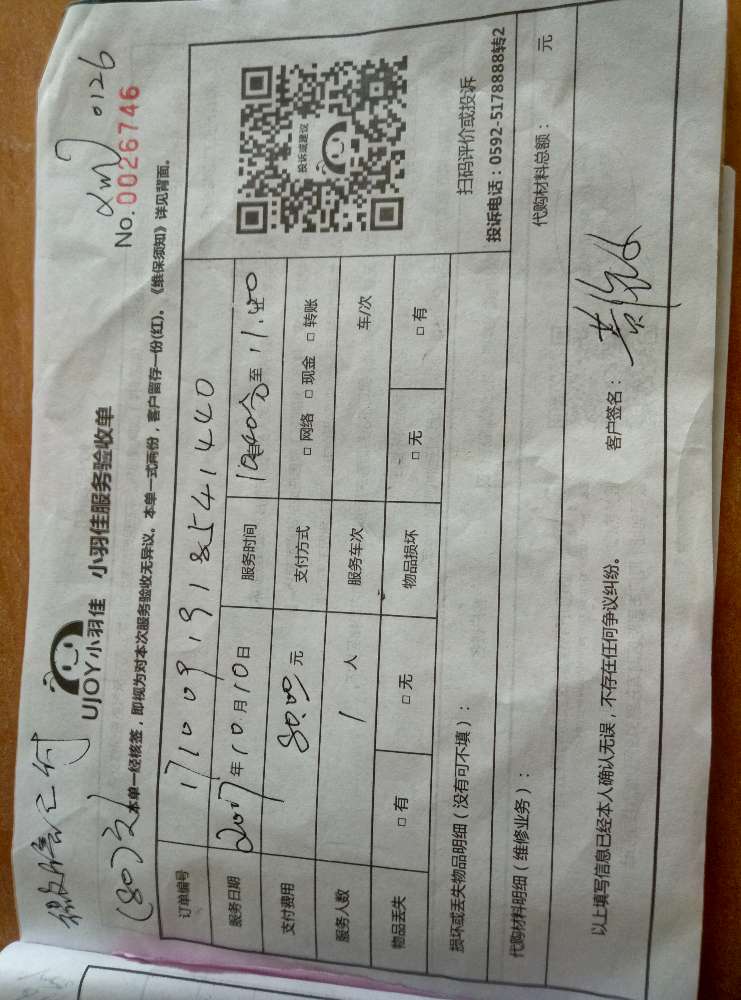 (80元)
xm 0126
No.0026746
UJOY小羽佳 小羽佳服务验收单
本单一经核签，即视为对本次服务验收无异议。本单一式两份，客户留存一份(红)。《维保须知》详见背面。
订单编号 1710091918541440
投诉或建议
服务日期 2017年10月10日 服务时间 10:40分至11:40
支付费用 80.00元 支付方式 □ 网络 □ 现金 □ 转账
服务人数 1 人 服务车次 车/次
物品丢失 □ 有 □ 无 物品损坏 □ 无 □ 有
扫码评价或投诉
投诉电话：0592-5178888转2
损坏或丢失物品明细（没有可不填）：
代购材料明细（维修业务）： 代购材料总额： 元
以上填写信息已经本人确认无误，不存在任何争议纠纷。 客户签名：